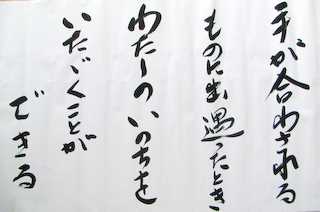 手が合わされる
ものに出遇ったとき
わたしのいのちを
いただくことが
できる